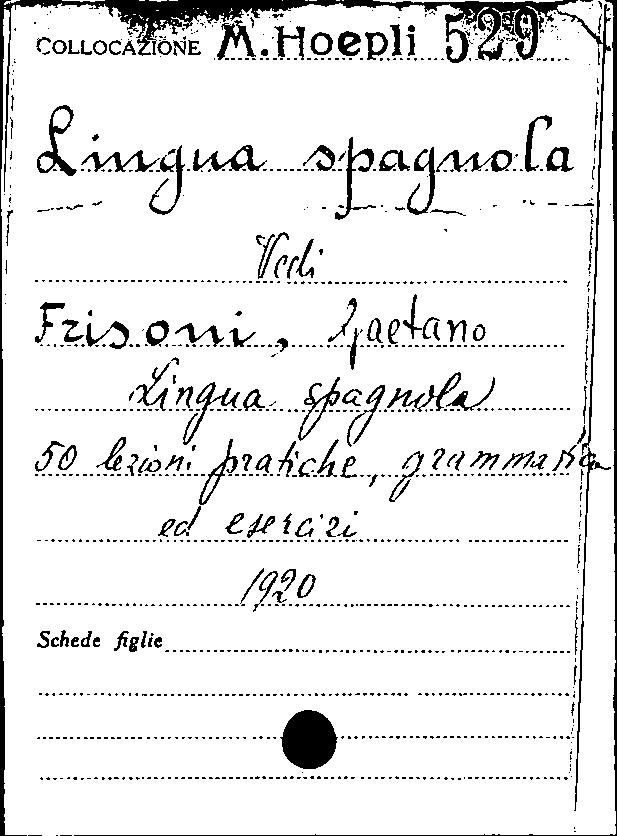 COLLOCAZIONE M. Hoepli 529
Lingua spagnola
Vedi
Frisoni, Gaetano
Lingua spagnola
50 lezioni pratiche, grammatica
ed esercizi
1920
Schede figlie